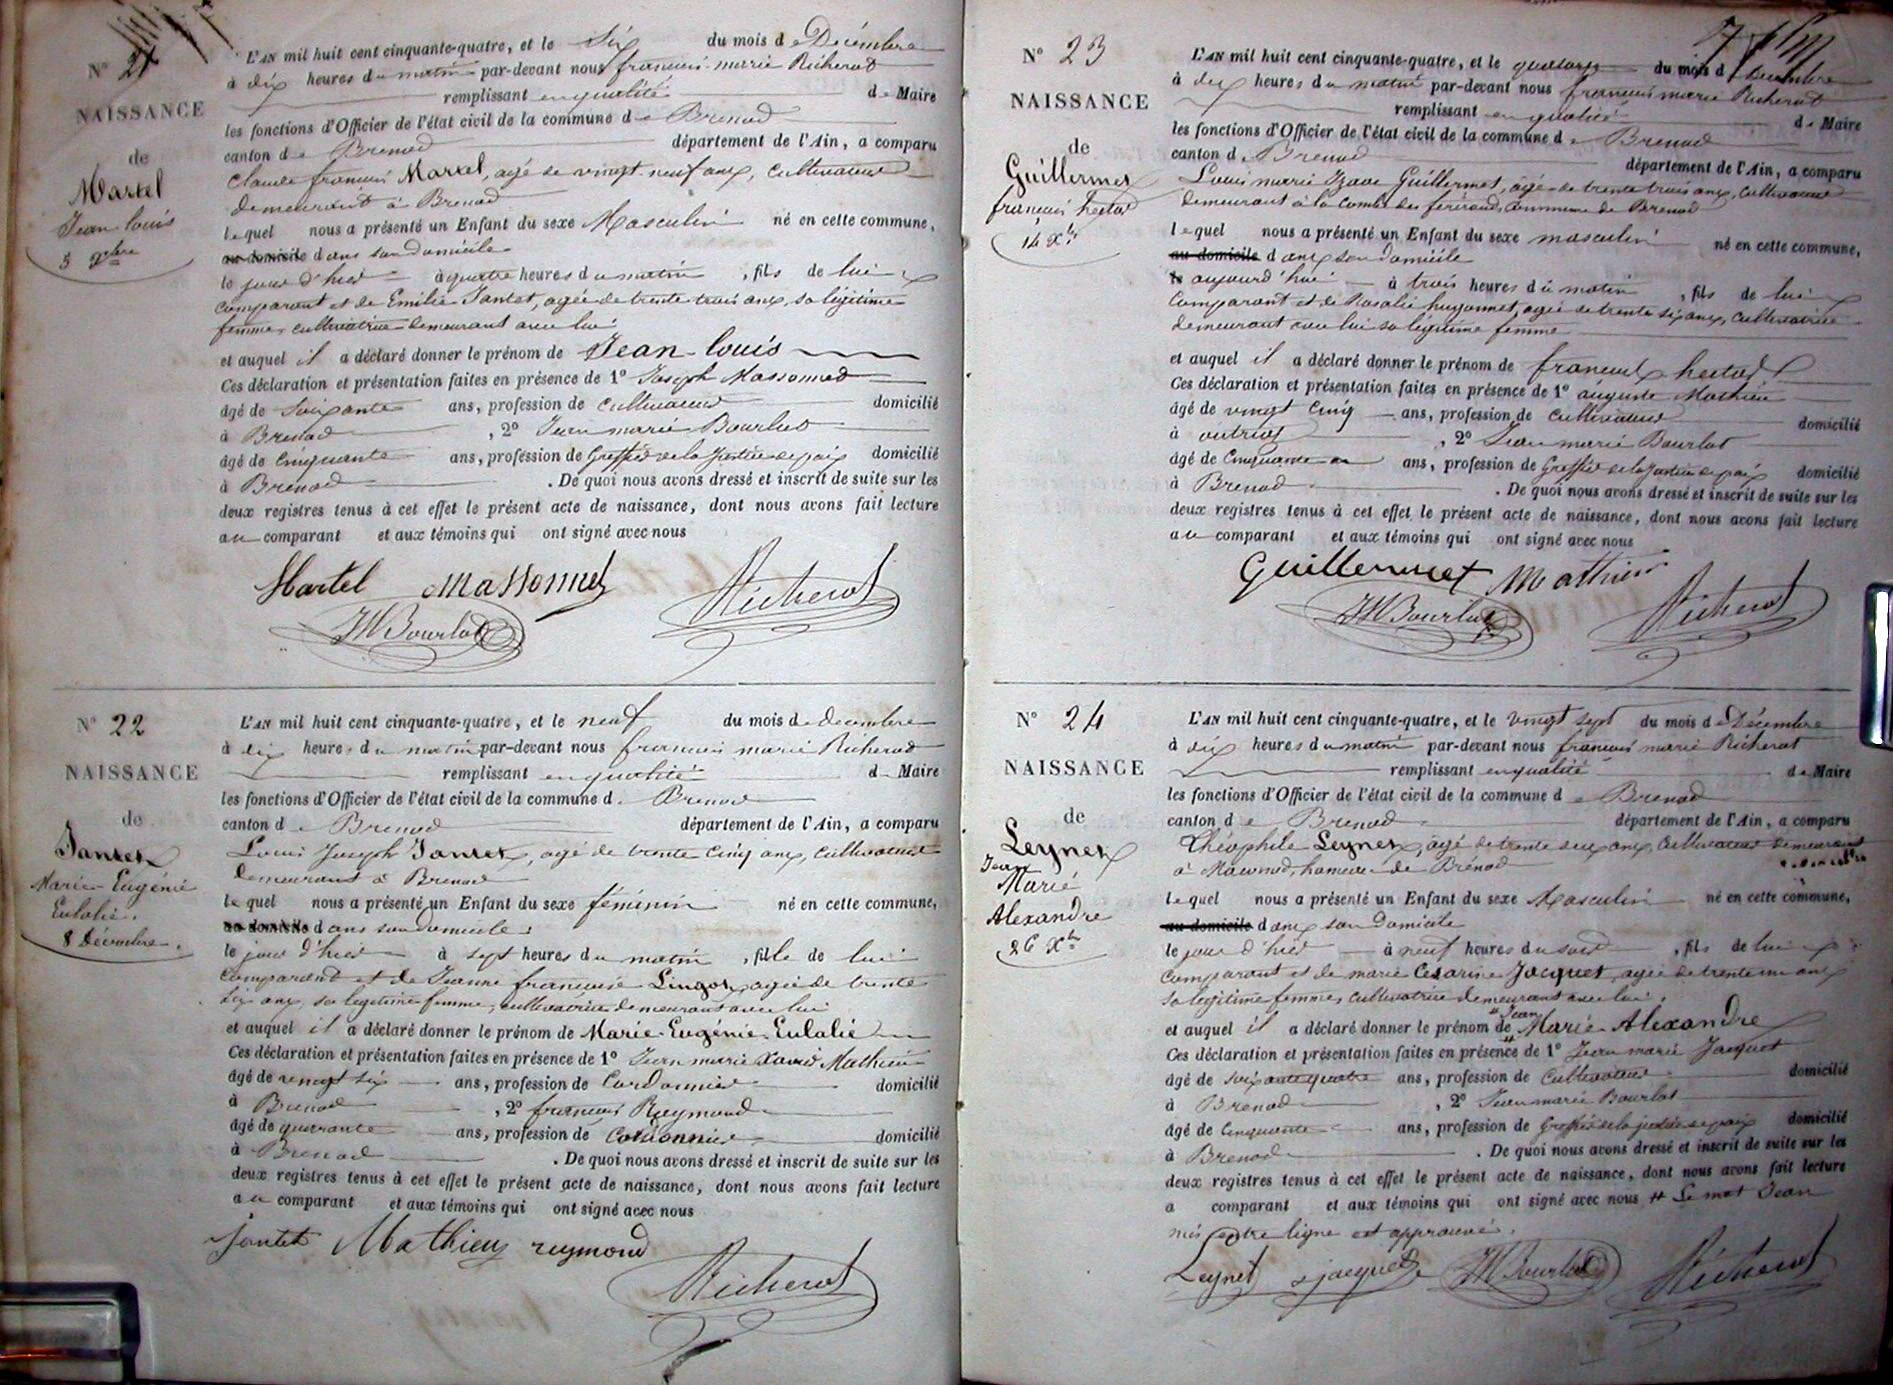 N° 21
NAISSANCE
de
Martel
Jean louis
5 Xbre
L'AN mil huit cent cinquante-quatre, et le Six du mois de Décembre
à dix heures du matin par-devant nous francois-marie Richerot
remplissant en qualité de Maire
les fonctions d'Officier de l'état civil de la commune de Brenod
canton de Brenod département de l'Ain, a comparu
Claude francois Martel, agé de vingt neuf ans, cultivateur
demeurant à Brenod
lequel nous a présenté un Enfant du sexe Masculin né en cette commune,
au domicile dans son domicile
le jour d'hier à quatre heures du matin, fils de lui
comparant et de Emilie Jantet, agée de trente trois ans, sa légitime
femme, cultivatrice demeurant avec lui
et auquel il a déclaré donner le prénom de Jean-louis
Ces déclaration et présentation faites en présence de 1° Joseph Massonnet
âgé de Soixante ans, profession de cultivateur domicilié
à Brenod, 2° Jean marie Bourlot
âgé de Cinquante ans, profession de Greffier de la Justice de paix domicilié
à Brenod. De quoi nous avons dressé et inscrit de suite sur les
deux registres tenus à cet effet le présent acte de naissance, dont nous avons fait lecture
au comparant et aux témoins qui ont signé avec nous
Martel Massonnet Richerot
JM Bourlot
N° 22
NAISSANCE
de
Jantet
Marie-Eugénie
Eulalie.
8 Décembre.
L'AN mil huit cent cinquante-quatre, et le neuf du mois de decembre
à dix heures du matin par-devant nous francois marie Richerot
remplissant en qualité de Maire
les fonctions d'Officier de l'état civil de la commune de Brenod
canton de Brenod département de l'Ain, a comparu
Louis Joseph Jantet, agé de trente cinq ans, cultivateur
demeurant à Brenod
lequel nous a présenté un Enfant du sexe féminin né en cette commune,
au domicile dans son domicile
le jour d'hier à sept heures du matin, fille de lui
comparant et de Jeanne francoise Lingot, agée de trente
six ans, sa legitime femme, cultivatrice demeurant avec lui
et auquel il a déclaré donner le prénom de Marie-Eugénie-Eulalie
Ces déclaration et présentation faites en présence de 1° Jean marie Xavier Mathieu
âgé de vingt six ans, profession de Cordonnier domicilié
à Brenod, 2° francois Reymond
âgé de quarante ans, profession de Cordonnier domicilié
à Brenod. De quoi nous avons dressé et inscrit de suite sur les
deux registres tenus à cet effet le présent acte de naissance, dont nous avons fait lecture
au comparant et aux témoins qui ont signé avec nous
jantet Mathieu reymond
Richerot
N° 23
NAISSANCE
de
Guillermet
francois hector
14 Xbre
L'AN mil huit cent cinquante-quatre, et le quatorze du mois de Decembre
à dix heures du matin par-devant nous francois marie Richerot
remplissant en qualité de Maire
les fonctions d'Officier de l'état civil de la commune de Brenod
canton de Brenod département de l'Ain, a comparu
Louis marie Guillermet, agé de trente trois ans, cultivateur
demeurant à la Combe des commune de Brenod
lequel nous a présenté un Enfant du sexe masculin né en cette commune,
au domicile dans son domicile
le aujourd'hui à trois heures du matin, fils de lui
comparant et de Rosalie hugonnet, agée de trente six ans, cultivatrice
demeurant avec lui sa légitime femme
et auquel il a déclaré donner le prénom de francois hector
Ces déclaration et présentation faites en présence de 1° auguste Mathieu
âgé de vingt Cinq ans, profession de cultivateur domicilié
à outriaz, 2° Jean marie Bourlot
âgé de Cinquante ans, profession de Greffier de la Justice de paix domicilié
à Brenod. De quoi nous avons dressé et inscrit de suite sur les
deux registres tenus à cet effet le présent acte de naissance, dont nous avons fait lecture
au comparant et aux témoins qui ont signé avec nous
Guillermet Mathieu
JM Bourlot Richerot
N° 24
NAISSANCE
de
Leynet
Jean
Marie
Alexandre
26 Xbre
L'AN mil huit cent cinquante-quatre, et le vingt sept du mois de Décembre
à dix heures du matin par-devant nous francois marie Richerot
remplissant en qualité de Maire
les fonctions d'Officier de l'état civil de la commune de Brenod
canton de Brenod département de l'Ain, a comparu
Théophile Leynet, agé de trente deux ans, cultivateur demeurant
à hameau de Brénod
lequel nous a présenté un Enfant du sexe Masculin né en cette commune,
au domicile dans son Domicile
le jour d'hier à neuf heures du soir, fils de lui
comparant et de marie Césarine Jacquet, agée de trente un ans
sa legitime femme, cultivatrice demeurant avec lui.
et auquel il a déclaré donner le prénom de # Jean Marie-Alexandre
Ces déclaration et présentation faites en présence de 1° Jean marie Jacquet
âgé de soixante quatre ans, profession de Cultivateur domicilié
à Brenod, 2° Jean marie Bourlot
âgé de Cinquante ans, profession de Greffier de la justice de paix domicilié
à Brenod. De quoi nous avons dressé et inscrit de suite sur les
deux registres tenus à cet effet le présent acte de naissance, dont nous avons fait lecture
a comparant et aux témoins qui ont signé avec nous # Le mot Jean
mis entre ligne est approuvé.
Leynet jacquet JM Bourlot Richerot